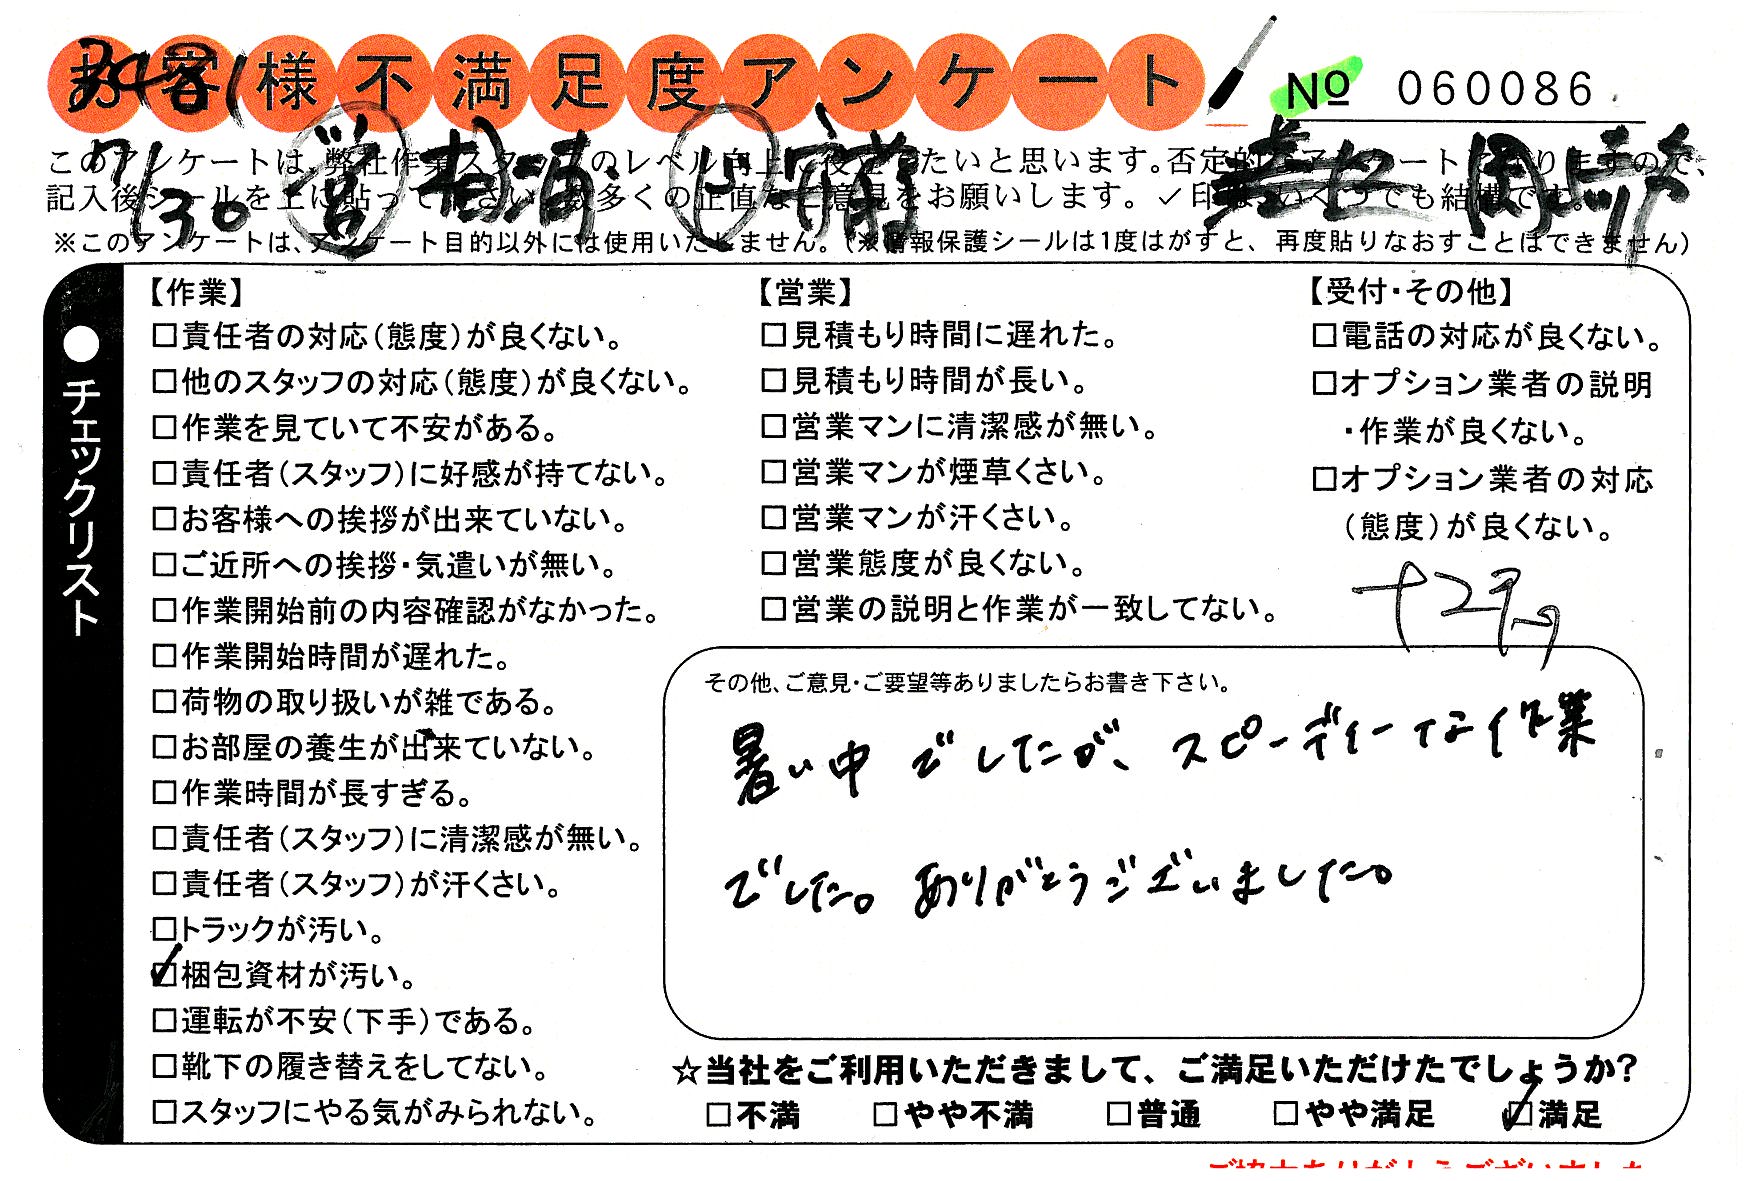 お客様不満足度アンケート
№ 060086
7/30 営
このアンケートは、弊社作業スタッフのレベル向上に役立てたいと思います。否定的なアンケートとなりますので、
記入後シールを上に貼って下さい。数多くの正直なご意見をお願いします。✓印は、いくつでも結構です。
※このアンケートは、アンケート目的以外には使用いたしません。(※情報保護シールは1度はがすと、再度貼りなおすことはできません)
●チェックリスト
【作業】
□責任者の対応(態度)が良くない。
□他のスタッフの対応(態度)が良くない。
□作業を見ていて不安がある。
□責任者(スタッフ)に好感が持てない。
□お客様への挨拶が出来ていない。
□ご近所への挨拶・気遣いが無い。
□作業開始前の内容確認がなかった。
□作業開始時間が遅れた。
□荷物の取り扱いが雑である。
□お部屋の養生が出来ていない。
□作業時間が長すぎる。
□責任者(スタッフ)に清潔感が無い。
□責任者(スタッフ)が汗くさい。
□トラックが汚い。
☑梱包資材が汚い。
□運転が不安(下手)である。
□靴下の履き替えをしてない。
□スタッフにやる気がみられない。
【営業】
□見積もり時間に遅れた。
□見積もり時間が長い。
□営業マンに清潔感が無い。
□営業マンが煙草くさい。
□営業マンが汗くさい。
□営業態度が良くない。
□営業の説明と作業が一致してない。
【受付・その他】
□電話の対応が良くない。
□オプション業者の説明
・作業が良くない。
□オプション業者の対応
(態度)が良くない。
その他、ご意見・ご要望等ありましたらお書き下さい。
暑い中でしたが、スピーディーな作業
でした。ありがとうございました。
☆当社をご利用いただきまして、ご満足いただけたでしょうか?
□不満 □やや不満 □普通 □やや満足 ☑満足
ご協力ありがとうございました